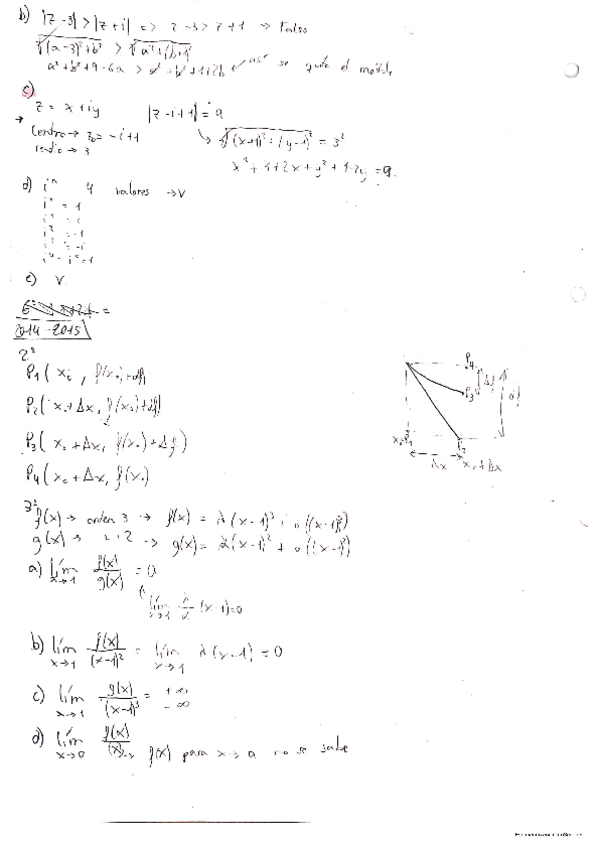 b) |z-3| > |z+i| => z-3 > z+1 → Falso
√(a-3)²+b² > √a²+(b+1)²
a²+b²+9-6a > a²+b²+1+2b ← así se quita el módulo
c)
z = x+iy |z-i+1| = 9
→ Centro → z₀ = -i+1 ↳ √(x+1)²+(y-1)² = 3²
radio → 3 x²+1+2x+y²+1-2y = 9.
d) iⁿ 4 valores → V
i⁰ = 1
i¹ = i
i² = -1
i³ = -i
i⁴ = i⁰ = 1
e) V
2014-2015
2º
P₁(x₀, f(x₀)+df)
P₂(x₀+Δx, f(x₀)+df)
P₃(x₀+Δx, f(x₀)+Δf)
P₄(x₀+Δx, f(x₀)
P₄
Δf
P₃
df
P₂
Δx x₀+Δx
3º
f(x) → orden 3 → f(x) = λ(x-1)³ + o((x-1)³)
g(x) → " " 2 → g(x) = α(x-1)² + o((x-1)²)
a) lím x→1 f(x)/g(x) = 0
lím x→1 λ/α (x-1)=0
b) lím x→1 f(x)/(x-1)² = lím x→1 λ(x-1) = 0
c) lím x→1 g(x)/(x-1)³ = +∞ -∞
d) lím x→0 f(x)/(x) → f(x) para x→a no se sabe